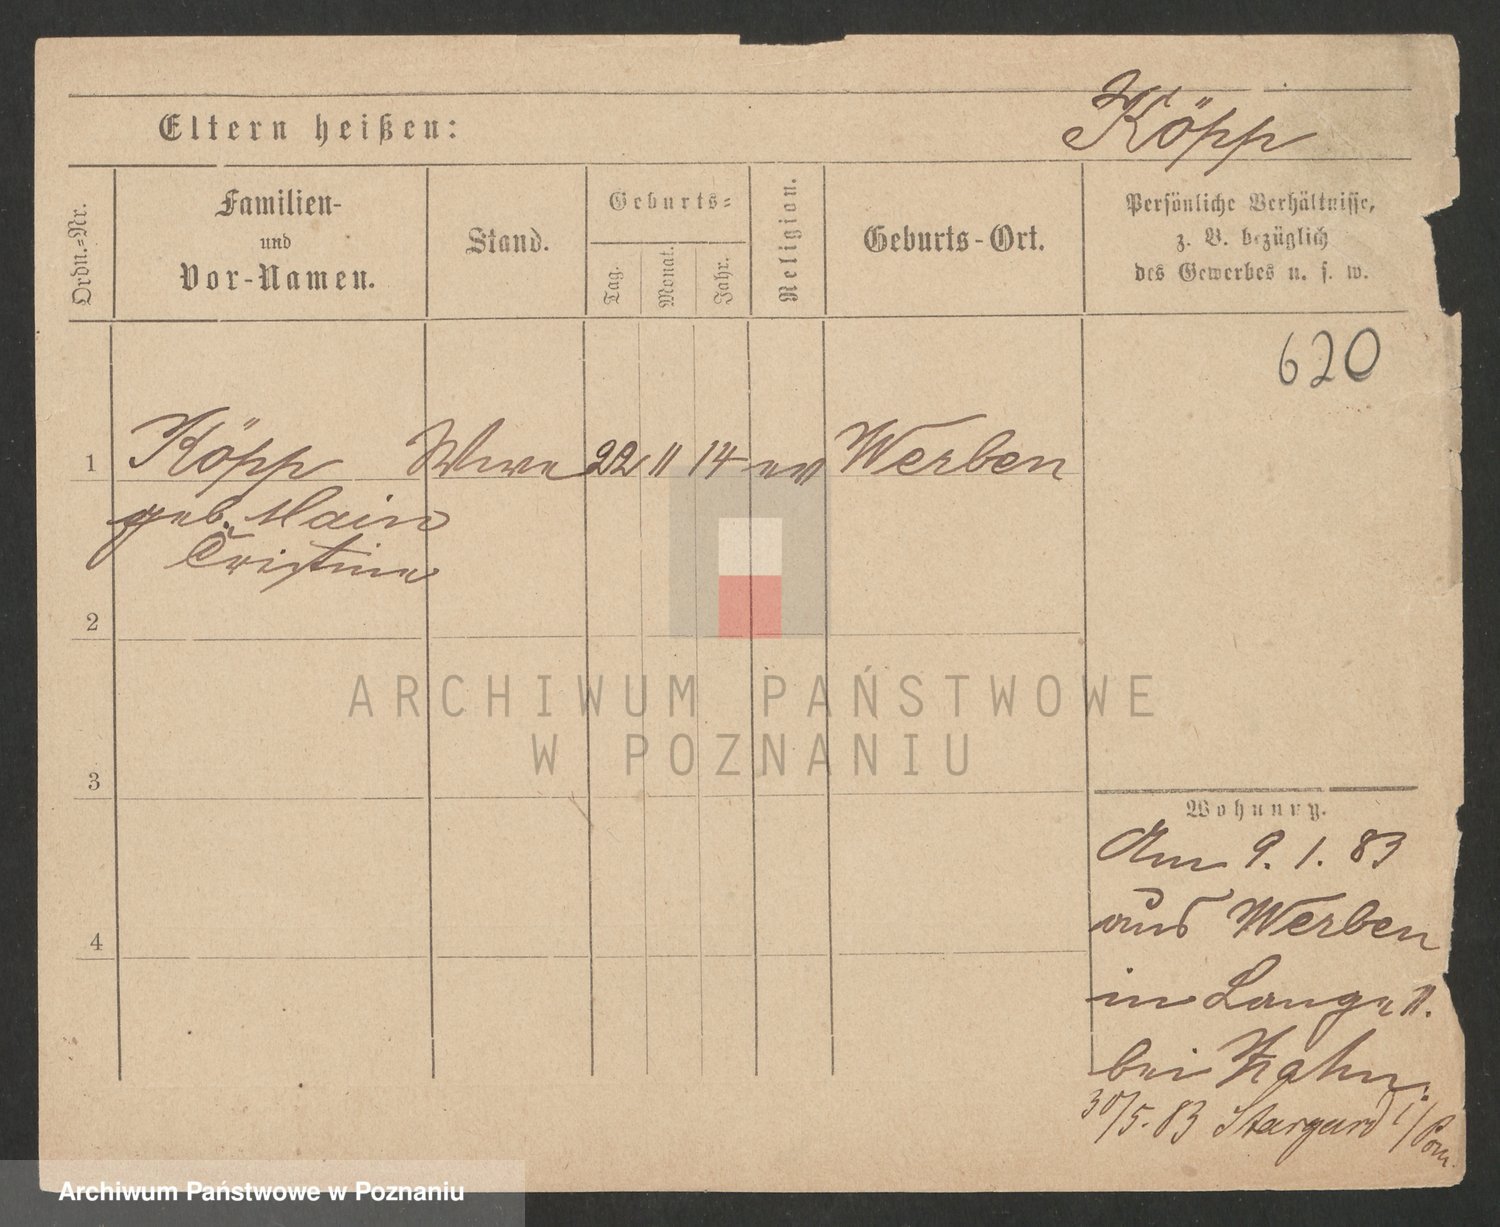 Köpp
Eltern heißen:
Ordn.=Nr.
Familien-
und
Vor-Namen.
Stand.
Geburts=
Tag.
Monat.
Jahr.
Religion.
Geburts-Ort.
Persönliche Verhältnisse,
z. B. bezüglich
des Gewerbes u. s. w.
620
1 Köpp Wwe 22 11 14 ev Werben
geb. Main
Cristine
2
3
4
Wohnung.
Am 9. 1. 83
aus Werben
in
bei
30/5. 83 Stargard i/Pom.
ARCHIWUM PAŃSTWOWE
W POZNANIU
Archiwum Państwowe w Poznaniu